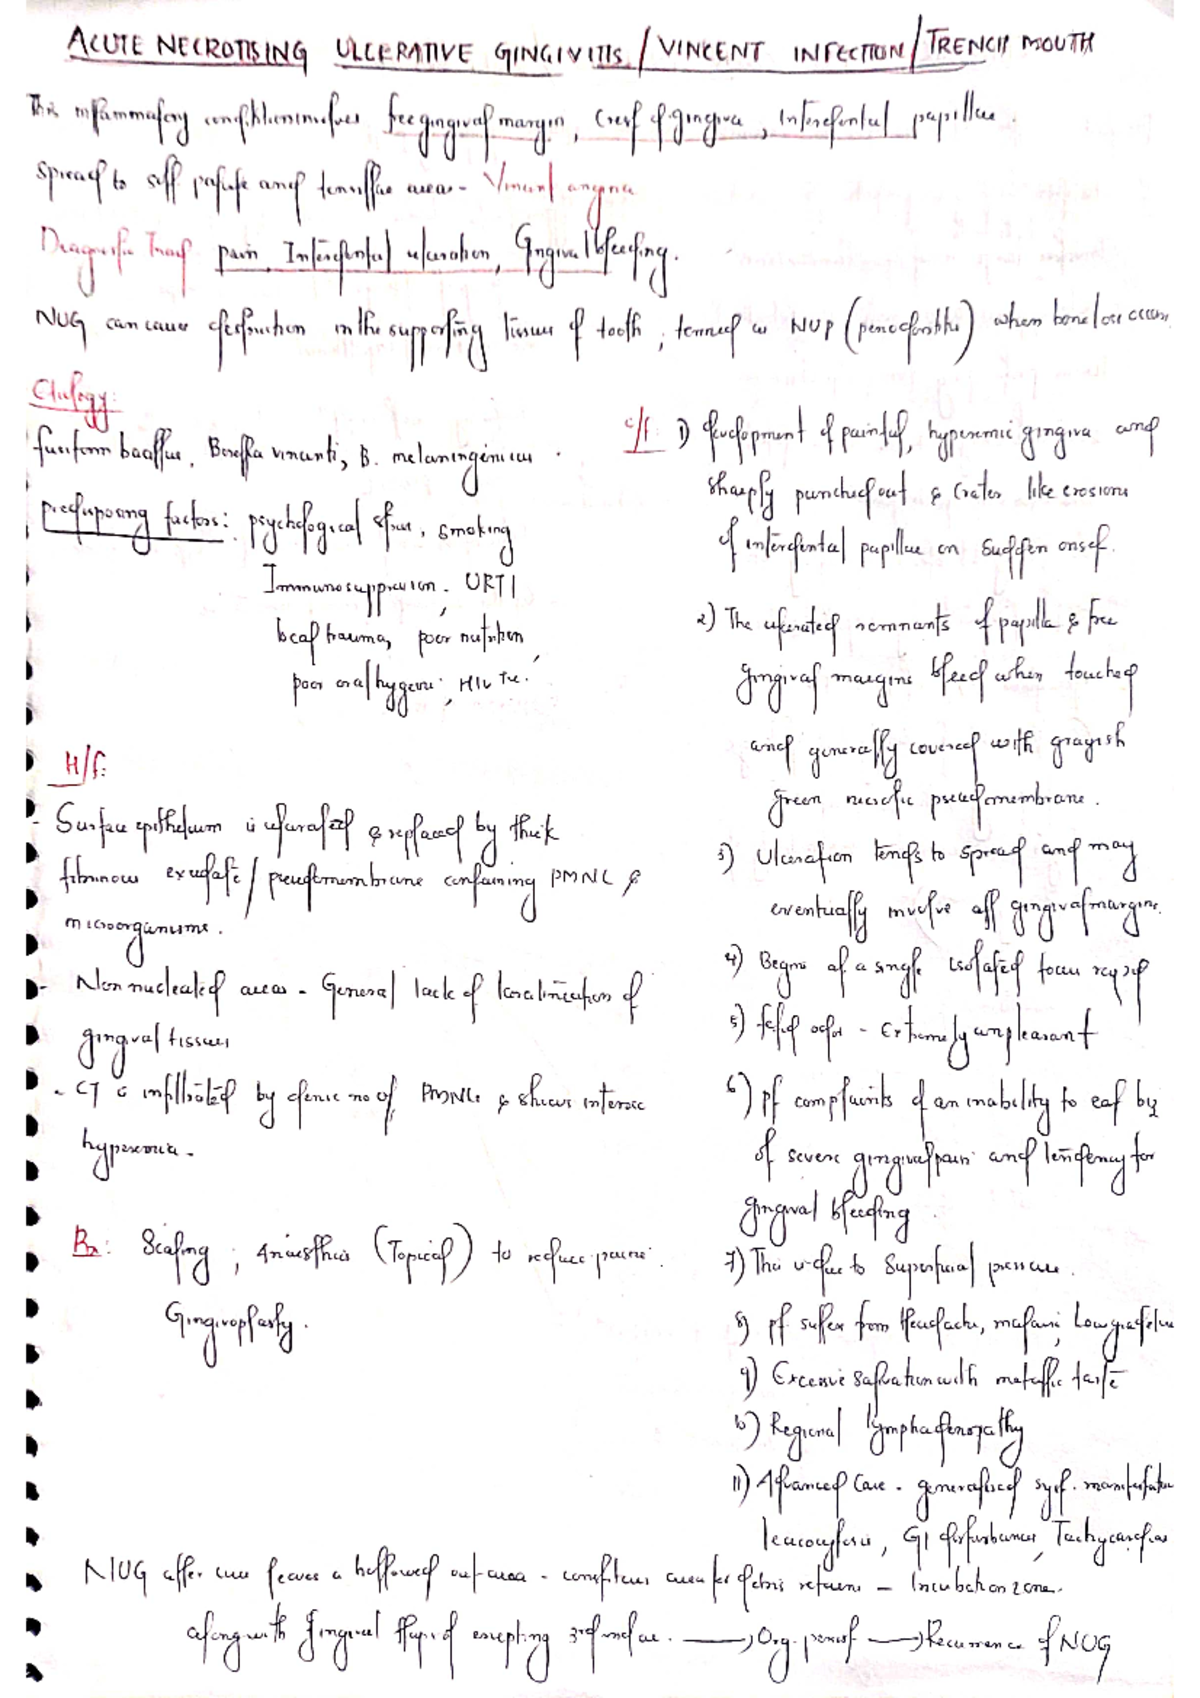 ACUTE NECROTISING ULCERATIVE GINGIVITIS / VINCENT INFECTION / TRENCH MOUTH
This inflammatory condition involves free gingival margin, Crest of gingiva, Interdental papillae.
Spread to soft palate and tonsillar areas - Vincent angina
Diagnostic Triad pain, Interdental ulceration, Gingival bleeding.
NUG can cause destruction in the supporting tissues of tooth, termed as NUP (periodontitis) when bone loss occurs.
Etiology:
fusiform bacillus, Borellia vincenti, B. melaningenicus.
predisposing factors: psychological stress, smoking
Immunosuppression, URTI
local trauma, poor nutrition,
poor oral hygiene, HIV +ve.
H/f:
- Surface epithelium is ulcerated & replaced by thick
fibrinous exudate / pseudomembrane containing PMNL &
microorganisms.
- Non nucleated areas - General lack of keratinization of
gingival tissues
- CT is infiltrated by dense no of PMNLs & shows intense
hyperemia.
Rx: Scaling, Anaesthesia (Topical) to reduce pain
Gingivoplasty.
c/f: 1) development of painful, hyperemic gingiva and
sharply punched out & Crater like erosions
of interdental papillae on sudden onset.
2) The ulcerated remnants of papilla & free
gingival margins bleed when touched
and generally covered with grayish
green necrotic pseudomembrane.
3) Ulceration tends to spread and may
eventually involve all gingival margins.
4) Begins at a single isolated focus
5) fetid odor - Extremely unpleasant
6) pt complaints of an inability to eat bcz
of severe gingival pain and tendency for
gingival bleeding.
7) This is due to Superficial pressure.
8) pt suffer from Headache, malaise, Low grade fever
9) Excessive Salivation with metallic taste
10) Regional lymphadenopathy
11) Advanced Case - generalised syst. manifestation
leucocytosis, GI disturbances, Tachycardia
NUG after cure leaves a hollowed out area - constitutes area for debris retens - Incubation zone.
along with gingival flap of erupting 3rd molar. → Org. persist → Recurrence of NUG